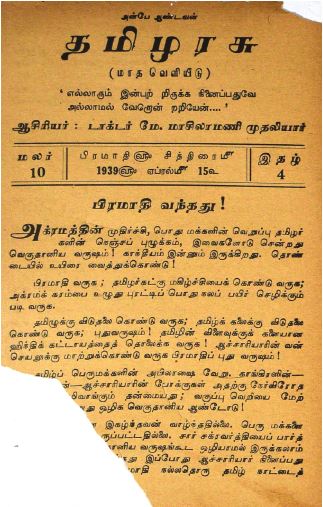 அன்பே ஆண்டவன்
தமிழரசு
(மாத வெளியீடு)
‘எல்லாகும் இன்பற் றிருக்க நினைப்பதுவே
அல்லாமல் வேறொன் றறியேன்....’
ஆசிரியர் : டாக்டர் மே. மாசிலாமணி முதலியார்
மலர்
10
பிரமாதி௵ சித்திரை௴
1939௵ ஏப்ரல்௴ 15௳
இதழ்
4
பிரமாதி வந்தது!
அக்ரமத்தின் முதிர்ச்சி, பொது மக்களின் வெறுப்பு தமிழர்
களின் நெஞ்சப் புழுக்கம், இவைகளோடு சென்றது
வெகுதானிய வருஷம்! காந்தீயம் இன்னும் இருக்கிறது. தொண்
டையில் உயிரை வைத்துக்கொண்டு!
பிரமாதி வருக ; தமிழர்கட்கு மகிழ்ச்சியைக் கொண்டு வருக;
அக்ரமக் காம்பை உழுது புரட்டிப் பொது நலப் பயிர் செழிக்கும்
படி வருக.
தமிழுக்கு விடுதலை கொண்டு வருக; தமிழ்க் கலைக்கு விடுதலை
கொண்டு வருக; புதுவருஷம்! தமிழின் விளைவுக்குக் களையான
ஹிந்திக் கட்டாயத்தைத் தொலைக்க வருக! ஆச்சாரியாரின் வன்
செயலுக்கு மாற்றுக்கொண்டு வருக பிரமாதிப் புது வருஷம்!
ழ்ப் பெருமக்களின் அபிலாஷை வேறு. காங்கிரஸின்—
ன்—ஆச்சாரியாரின் போக்குகள் அதற்கு நேர்விரோத
வாங்கும் தன்மையது; வகுப்பு வெறியை மேற்
து ஒழிக வெகுதானிய ஆண்டோடு!
இகழ்ந்தவன் வாழ்ந்ததில்லை. பெரு மக்களை
ருப்பட்டதில்லை. சார் சக்ரவர்த்தியைப் பார்த்
ன வருஷங்கூட ஒழியாமல் இருக்கலாம்
து இப்போது ஆச்சாரியார் நினைப்பது
மாதி நல்லதொரு தமிழ் நாட்டைத்